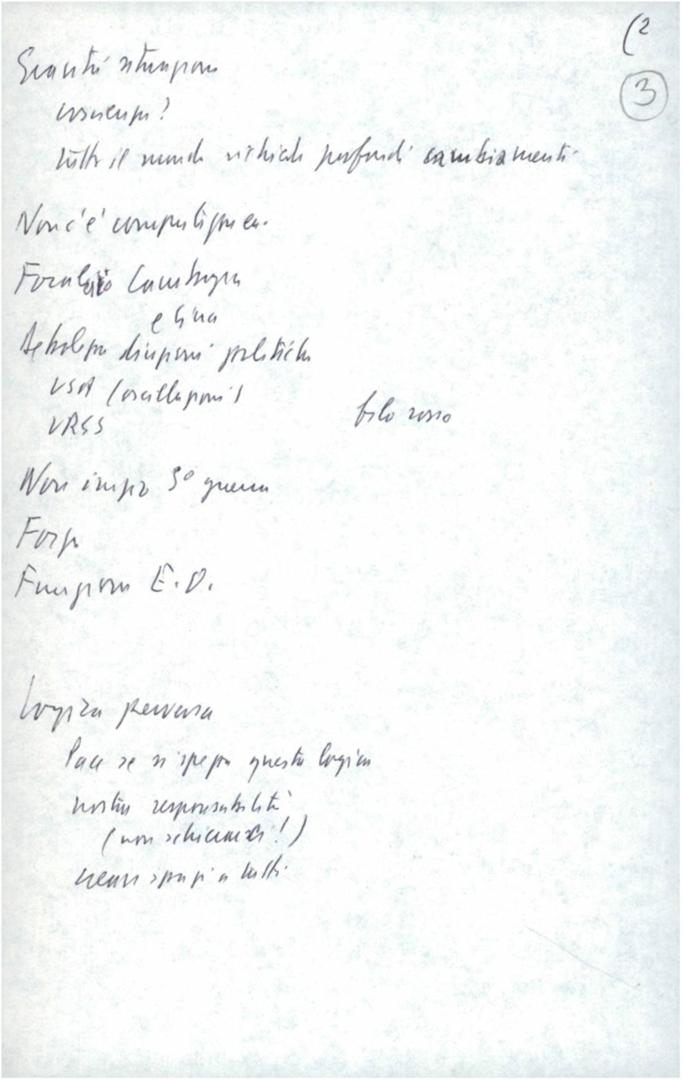 (2
3
Gravità situazione
coscienza?
tutto il mondo richiede profondi cambiamenti
Non c'è compuligenea.
Focolaio Cambogia
e Cina
Debolezza direzioni politiche
USA (oscillazioni)
URSS
filo rosso
Non impo 3º guerra
Forze
Funzione E.O.
Logica perversa
Pace se si spezza questa logica
nostra responsabilità
(non schierarsi!)
creare spazi a tutti